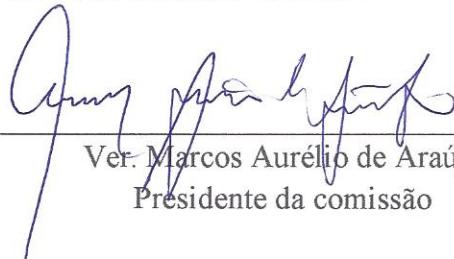 Ver. Marcos Aurélio de Araú
Presidente da comissão